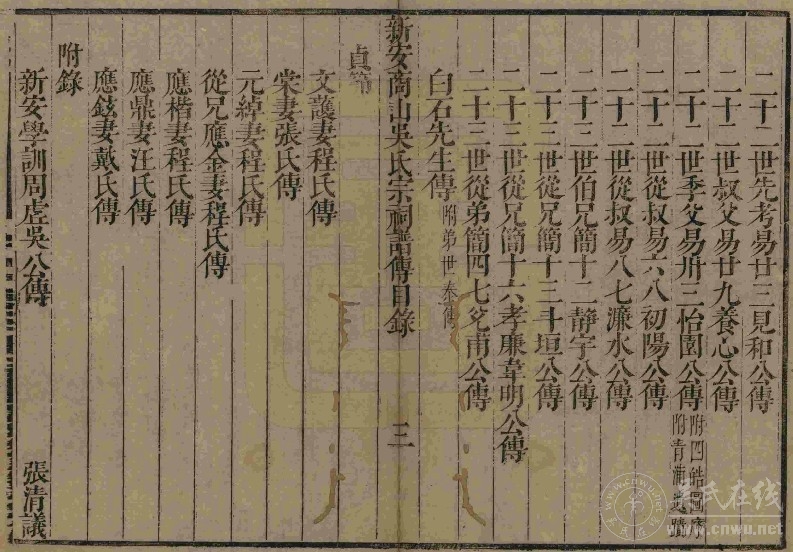 二十二世先考易廿三見和公傳
二十二世叔父易廿九養心公傳
二十二世季父易卅三怡園公傳 附四皓圖序 附青浦
二十二世從叔易六八初陽公傳
二十二世從叔易八七濂水公傳
二十三世伯兄簡十二靜宇公傳
二十三世從兄簡十三斗垣公傳
二十三世從兄簡十六孝廉韋明公傳
二十三世從弟簡四七爻甫公傳
白石先生傳 附弟世泰傳
新安商山吳氏宗祠譜傳目錄 三
貞節
文護妻程氏傳
棠妻張氏傳
元綽妻程氏傳
從兄應金妻程氏傳
應楷妻程氏傳
應鼎妻汪氏傳
應鉉妻戴氏傳
附錄
新安學訓周虛吳公傳 張清議
吴氏在线
www.cnwu.net